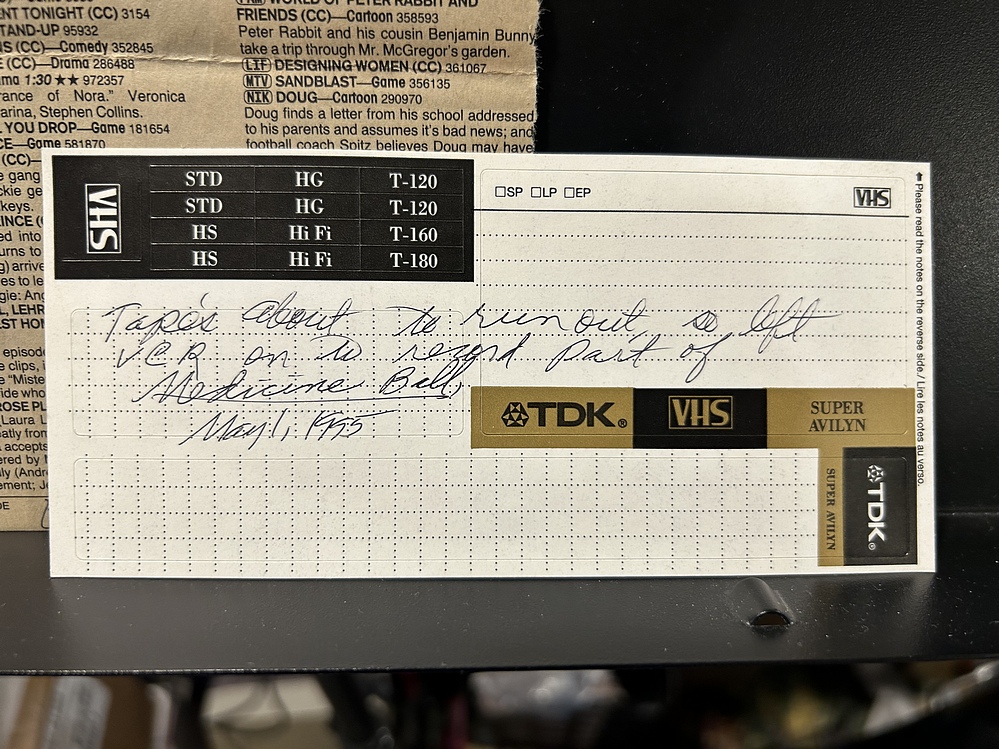 ENT TONIGHT (CC) 3154
TAND-UP 95932
S (CC)—Comedy 352845
E (CC)—Drama 286488
ma 1:30 ★★ 972357
rance of Nora." Veronica
arina, Stephen Collins.
YOU DROP—Game 181654
CE—Game 581870
(CC)—
e gang
ckie ge
keys.
INCE (
ed into
urns to
g) arrive
es to le
gie: Ang
L, LEHR
ST HOM
episode
e clips, i
e "Miste
ide who
ROSE PL
Laura L
atly from
accepts
ered by t
ly (Andre
ement; Je
DE
WORLD OF PETER RABBIT AND
FRIENDS (CC)—Cartoon 358593
Peter Rabbit and his cousin Benjamin Bunny
take a trip through Mr. McGregor's garden.
(LIF) DESIGNING WOMEN (CC) 361067
(MTV) SANDBLAST—Game 356135
(NIK) DOUG—Cartoon 290970
Doug finds a letter from his school addressed
to his parents and assumes it's bad news; and
football coach Spitz believes Doug may have
VHS
STD HG T-120
STD HG T-120
HS Hi Fi T-160
HS Hi Fi T-180
□SP □LP □EP
VHS
Tape's about to run out, so left
VCR on to record part of
Medicine Ball,
May 1, 1995
TDK® VHS SUPER
AVILYN
TDK®
SUPER AVILYN
Please read the notes on the reverse side./Lire les notes au verso.